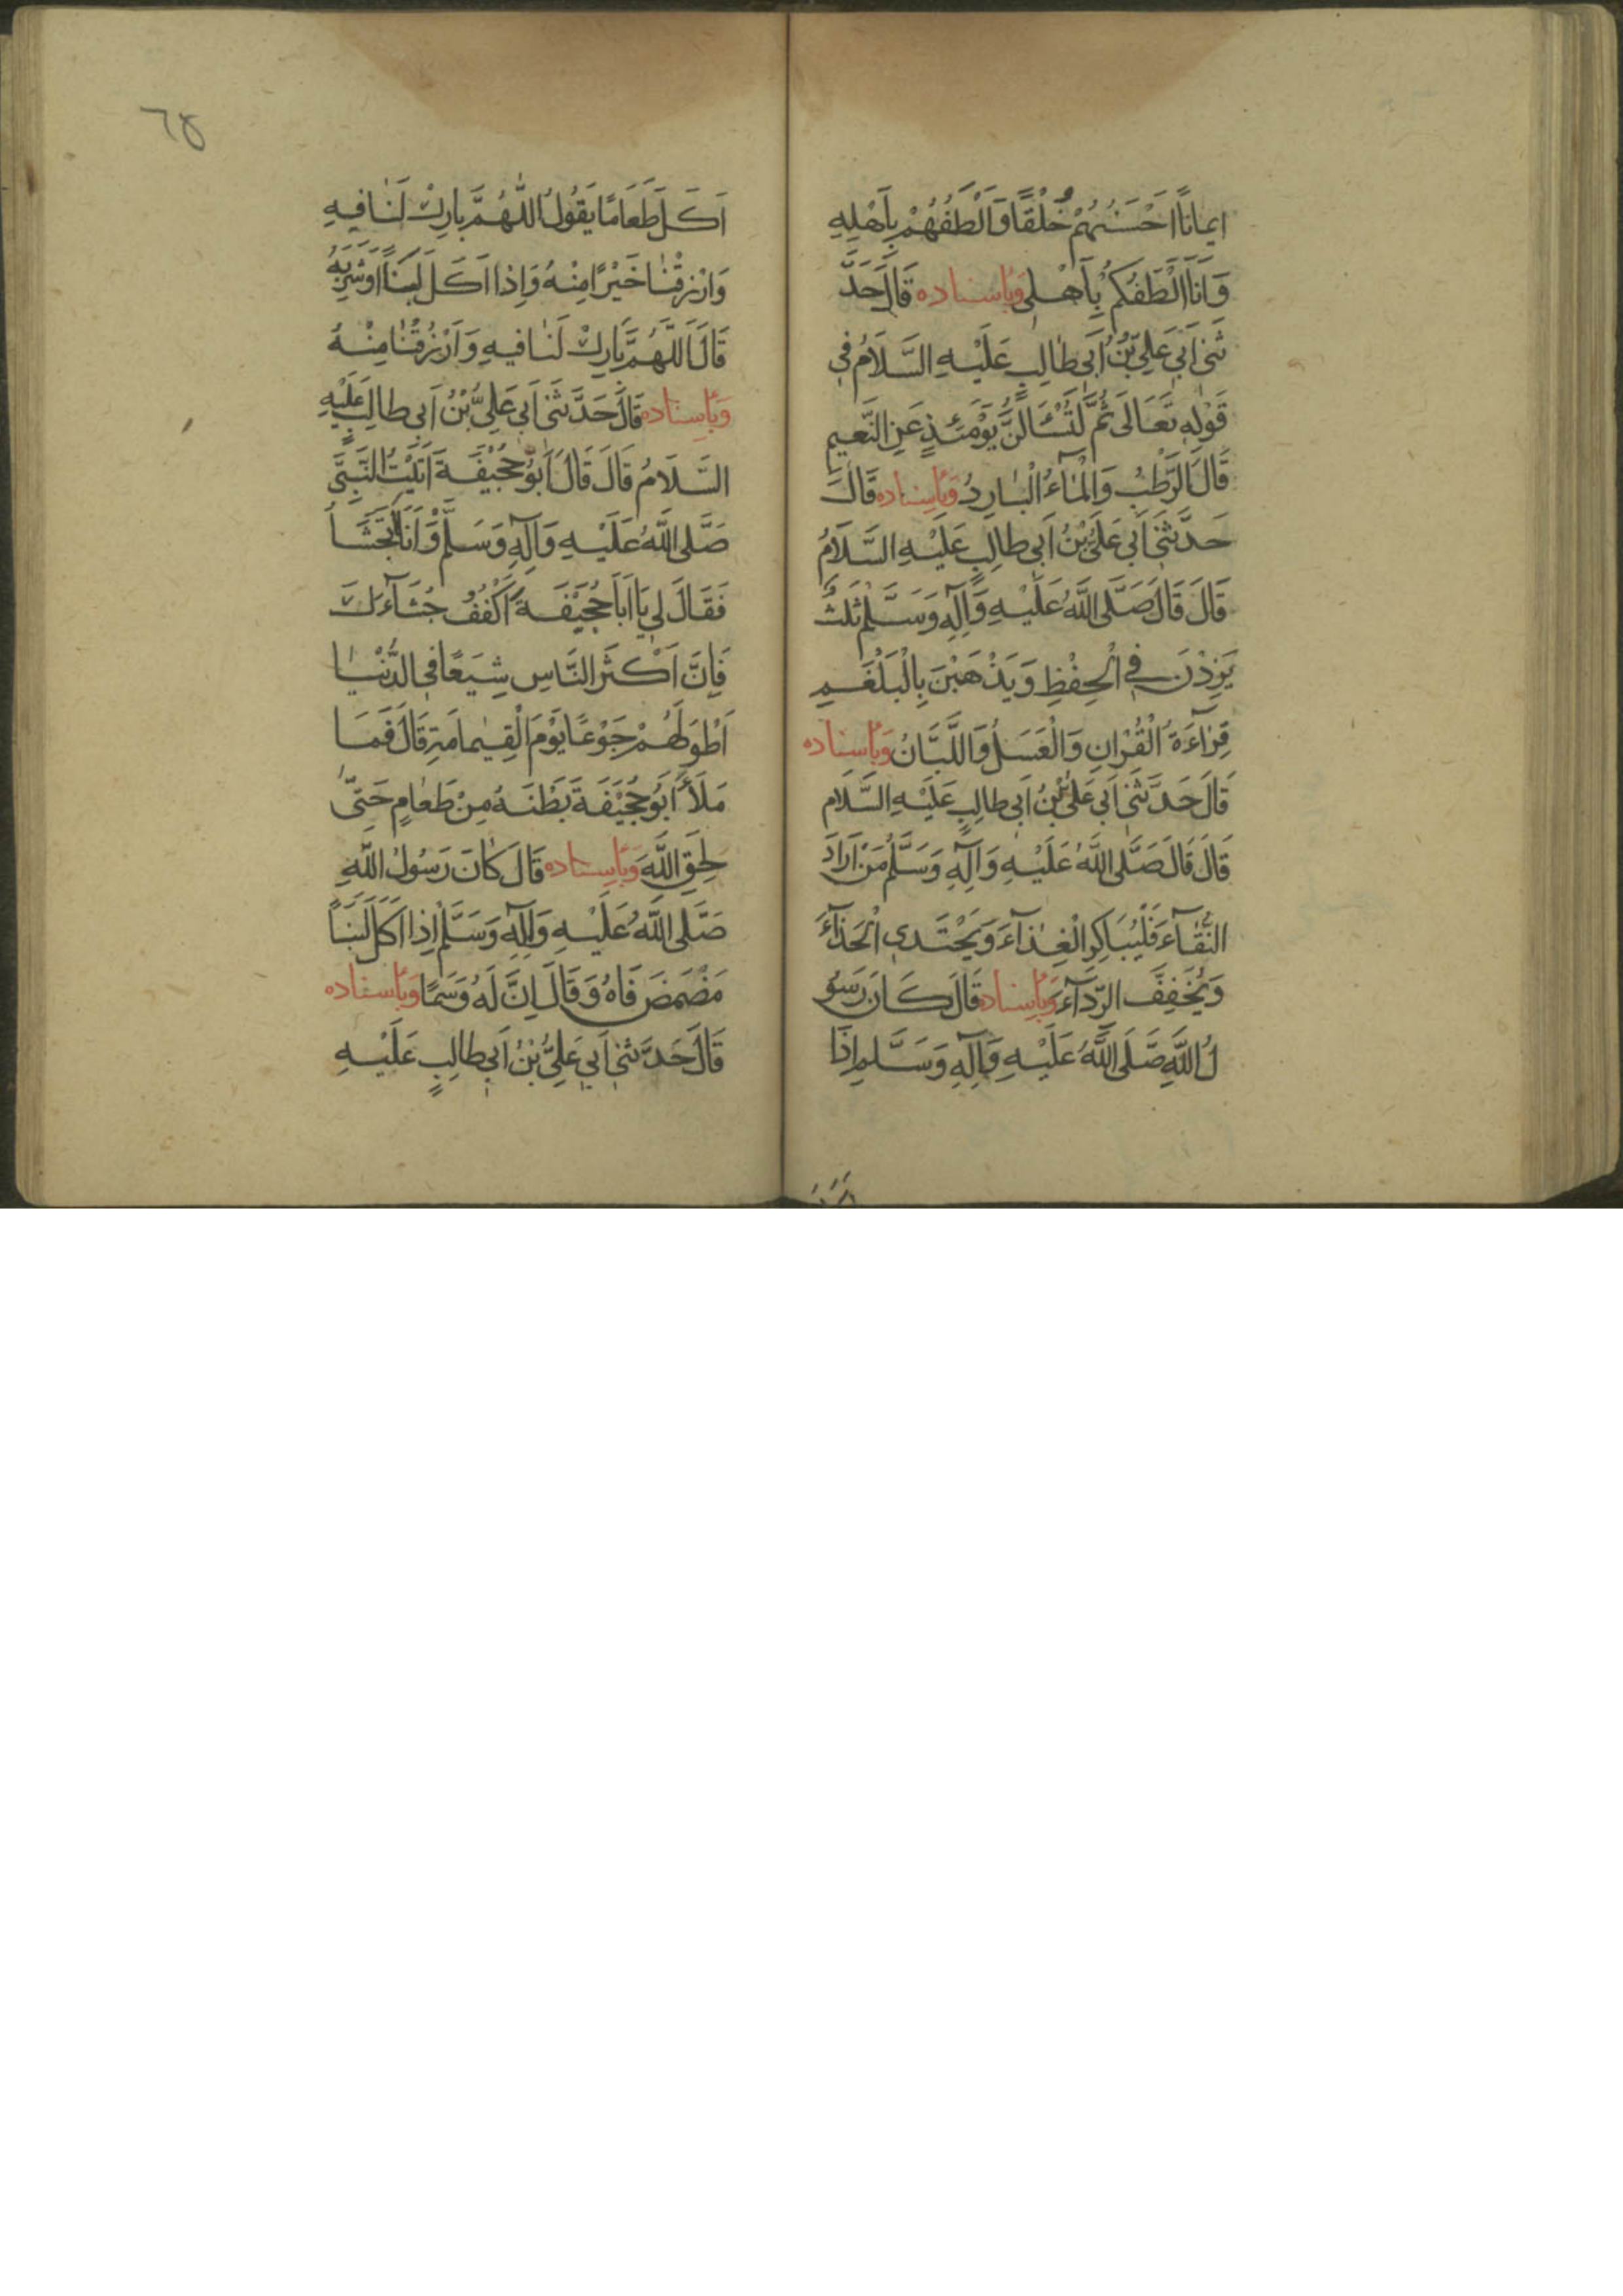 اِيمانًا اَحْسَنُهُمْ خُلْقًا وَاَلْطَفُهُمْ بِاَهْلِهِ
وَاَنَا اَلْطَفُكُمْ بِاَهْلي وَبِاسناده قَالَ حَدَّ
ثَنى اَبي عَلِيِّ بْنُ اَبى طالِبٍ عَلَيْهِ السَّلَامُ في
قَوْلِهِ تَعَالَى ثُمَّ لَتُسْئَالُنَّ يَوْمَئِذٍ عَنِ النَّعيمِ
قَالَ الرَّطْبُ وَالْمَآءُ الْبَارِدُ وَبِاسناده قَالَ
حَدَّثَنى اَبي عَلِىُّ بْنُ اَبي طالِبٍ عَلَيْهِ السَّلَامُ
قَالَ قَالَ صَلَّى اللَّهُ عَلَيْهِ وَآلِهِ وَسَلَّمْ ثَلثُ
يَزِدْنَ في الْحِفْظِ وَيَذْهَبْنَ بِالْبَلْغَمِ
قِرَآءَةُ الْقُرْانِ وَالْعَسَلُ وَاللَّبَّانُ وَبِاسناده
قَالَ حَدَّثَنى اَبي عَلىُّ بْنُ اَبي طالِبٍ عَلَيْهِ السَّلَام
قَالَ قَالَ صَلَّى اللَّهُ عَلَيْهِ وَآلِهِ وَسَلَّمْ مَنْ اَرَادَ
النَّقآءَ فَلْيُبَاكِرِ الْغِذآءَ وَيَحْتَدي الْحَذآءَ
وَيُخَفِفَّ الرِّدآءَ وَبِاسناده قَالَ كَانَ رَسُو
لُ اللَّهِ صَلَّى اللَّهُ عَلَيْهِ وَآلِهِ وَسَلَّمِ اِذَا
٦٤
اَكَلَ طَعَامًا يَقُولُ اللّٰهُمَّ بارِكْ لَنَا فيهِ
وَارْزِقْنَا خَيْرًا مِنْهُ وَاِذا اَكَلَ لَبَنًا اَوْ شَرِبَهُ
قَالَ اَللَّهُمَّ بَارِكْ لَنَا فيهِ وَارْزُقْنَا مِنْهُ
وَبِاسِناده قَالَ حَدَّثَنى اَبي عَلِيُّ بْنُ اَبى طالِبٍ عَلَيْهِ
السَّلَامُ قَالَ قَالَ اَبُو جُحَيْفَةَ اَتَيْتُ النَّبِيَّ
صَلَّى اللَّهُ عَلَيْهِ وَآلِهِ وَسَلَّمْ وَاَنَا اَتَجَشَّأُ
فَقَالَ لي يَا اَبَا جُحَيْفَةَ اَكْفُفْ جُشَآءَكَ
فَاِنَّ اَكْثَرَ النَّاسِ شِيَعًا فىِ الدُّنْيَا
اَطْوَلُهُمْ جَوْعًا يَوْمَ الْقِيمامَةِ قَالَ فَمَا
مَلَأَ اَبُو جُحَيْفَةَ بَطْنَهُ مِنْ طَعامٍ حَتّى
لَحِقَ اللَّهَ وَبِاسِناده قَالَ كانَ رَسُولُ اللَّهِ
صَلَّى اللَّهُ عَلَيْهِ وَآلِهِ وَسَلَّمْ اِذا اَكَلَ لَبَنًا
مَضْمَضَ فَاهُ وَقَالَ اِنَّ لَهُ وَسَمًا وَبِاسناده
قَالَ حَدَّثَنى اَبي عَلِيُّ بْنُ اَبي طالِبٍ عَلَيْهِ